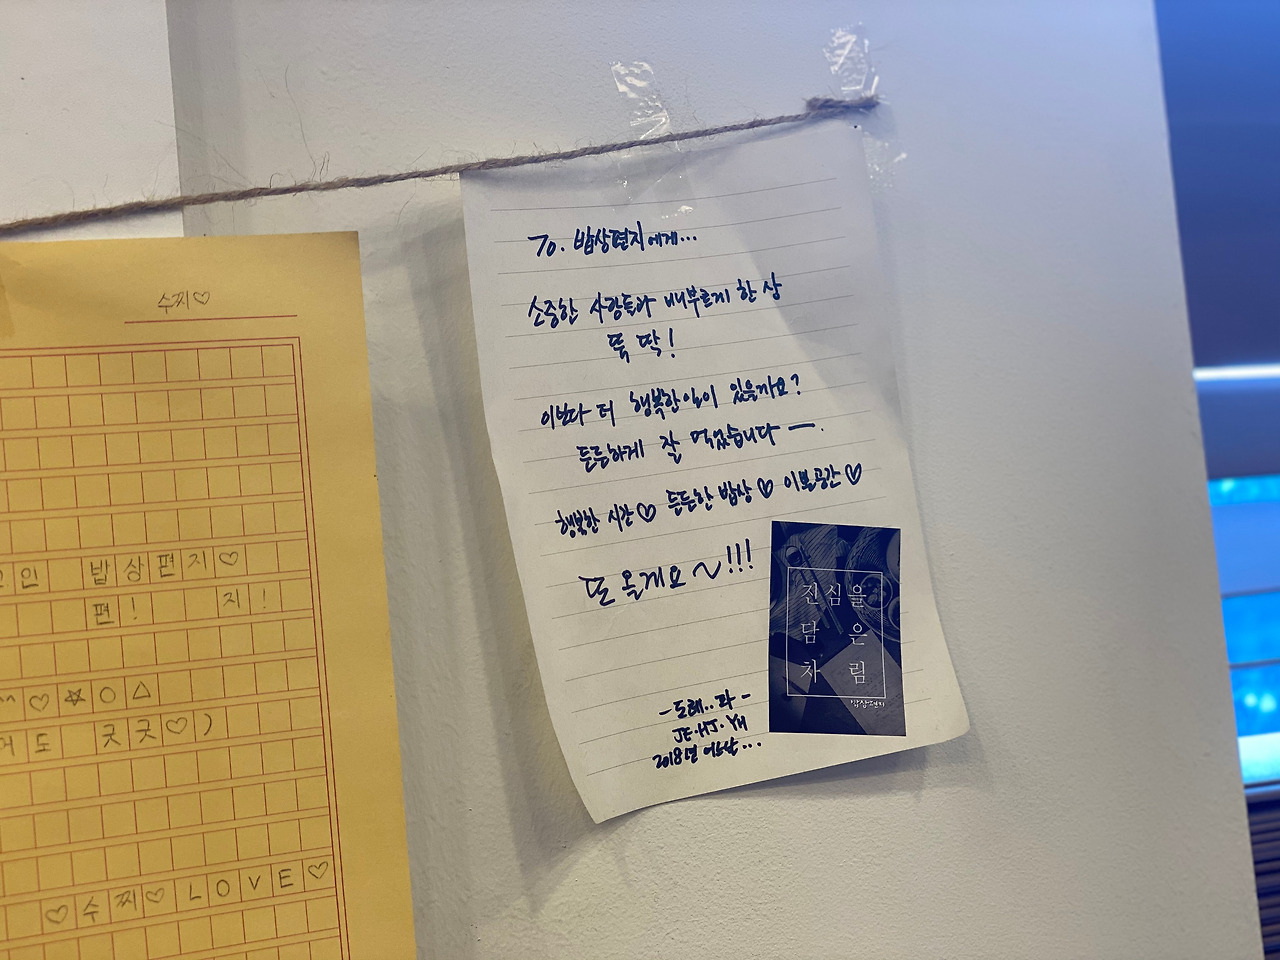 수찌♡
고인 밥상편지♡
편! 지!
♡☆○△
도 굿굿♡)
♡수찌♡LOVE♡
To. 밥상편지에게...
소중한 사람들과 배부르게 한 상
뚝 딱!
이보다 더 행복한 일이 있을까요?
든든하게 잘 먹었습니다 ㅡ.
행복한 시간♡ 든든한 밥상♡ 이쁜공간♡
또 올게요~!!!
-도레..파-
JE·HJ·YH
2018년 어느날...
진심을
담은
차림
밥상편지